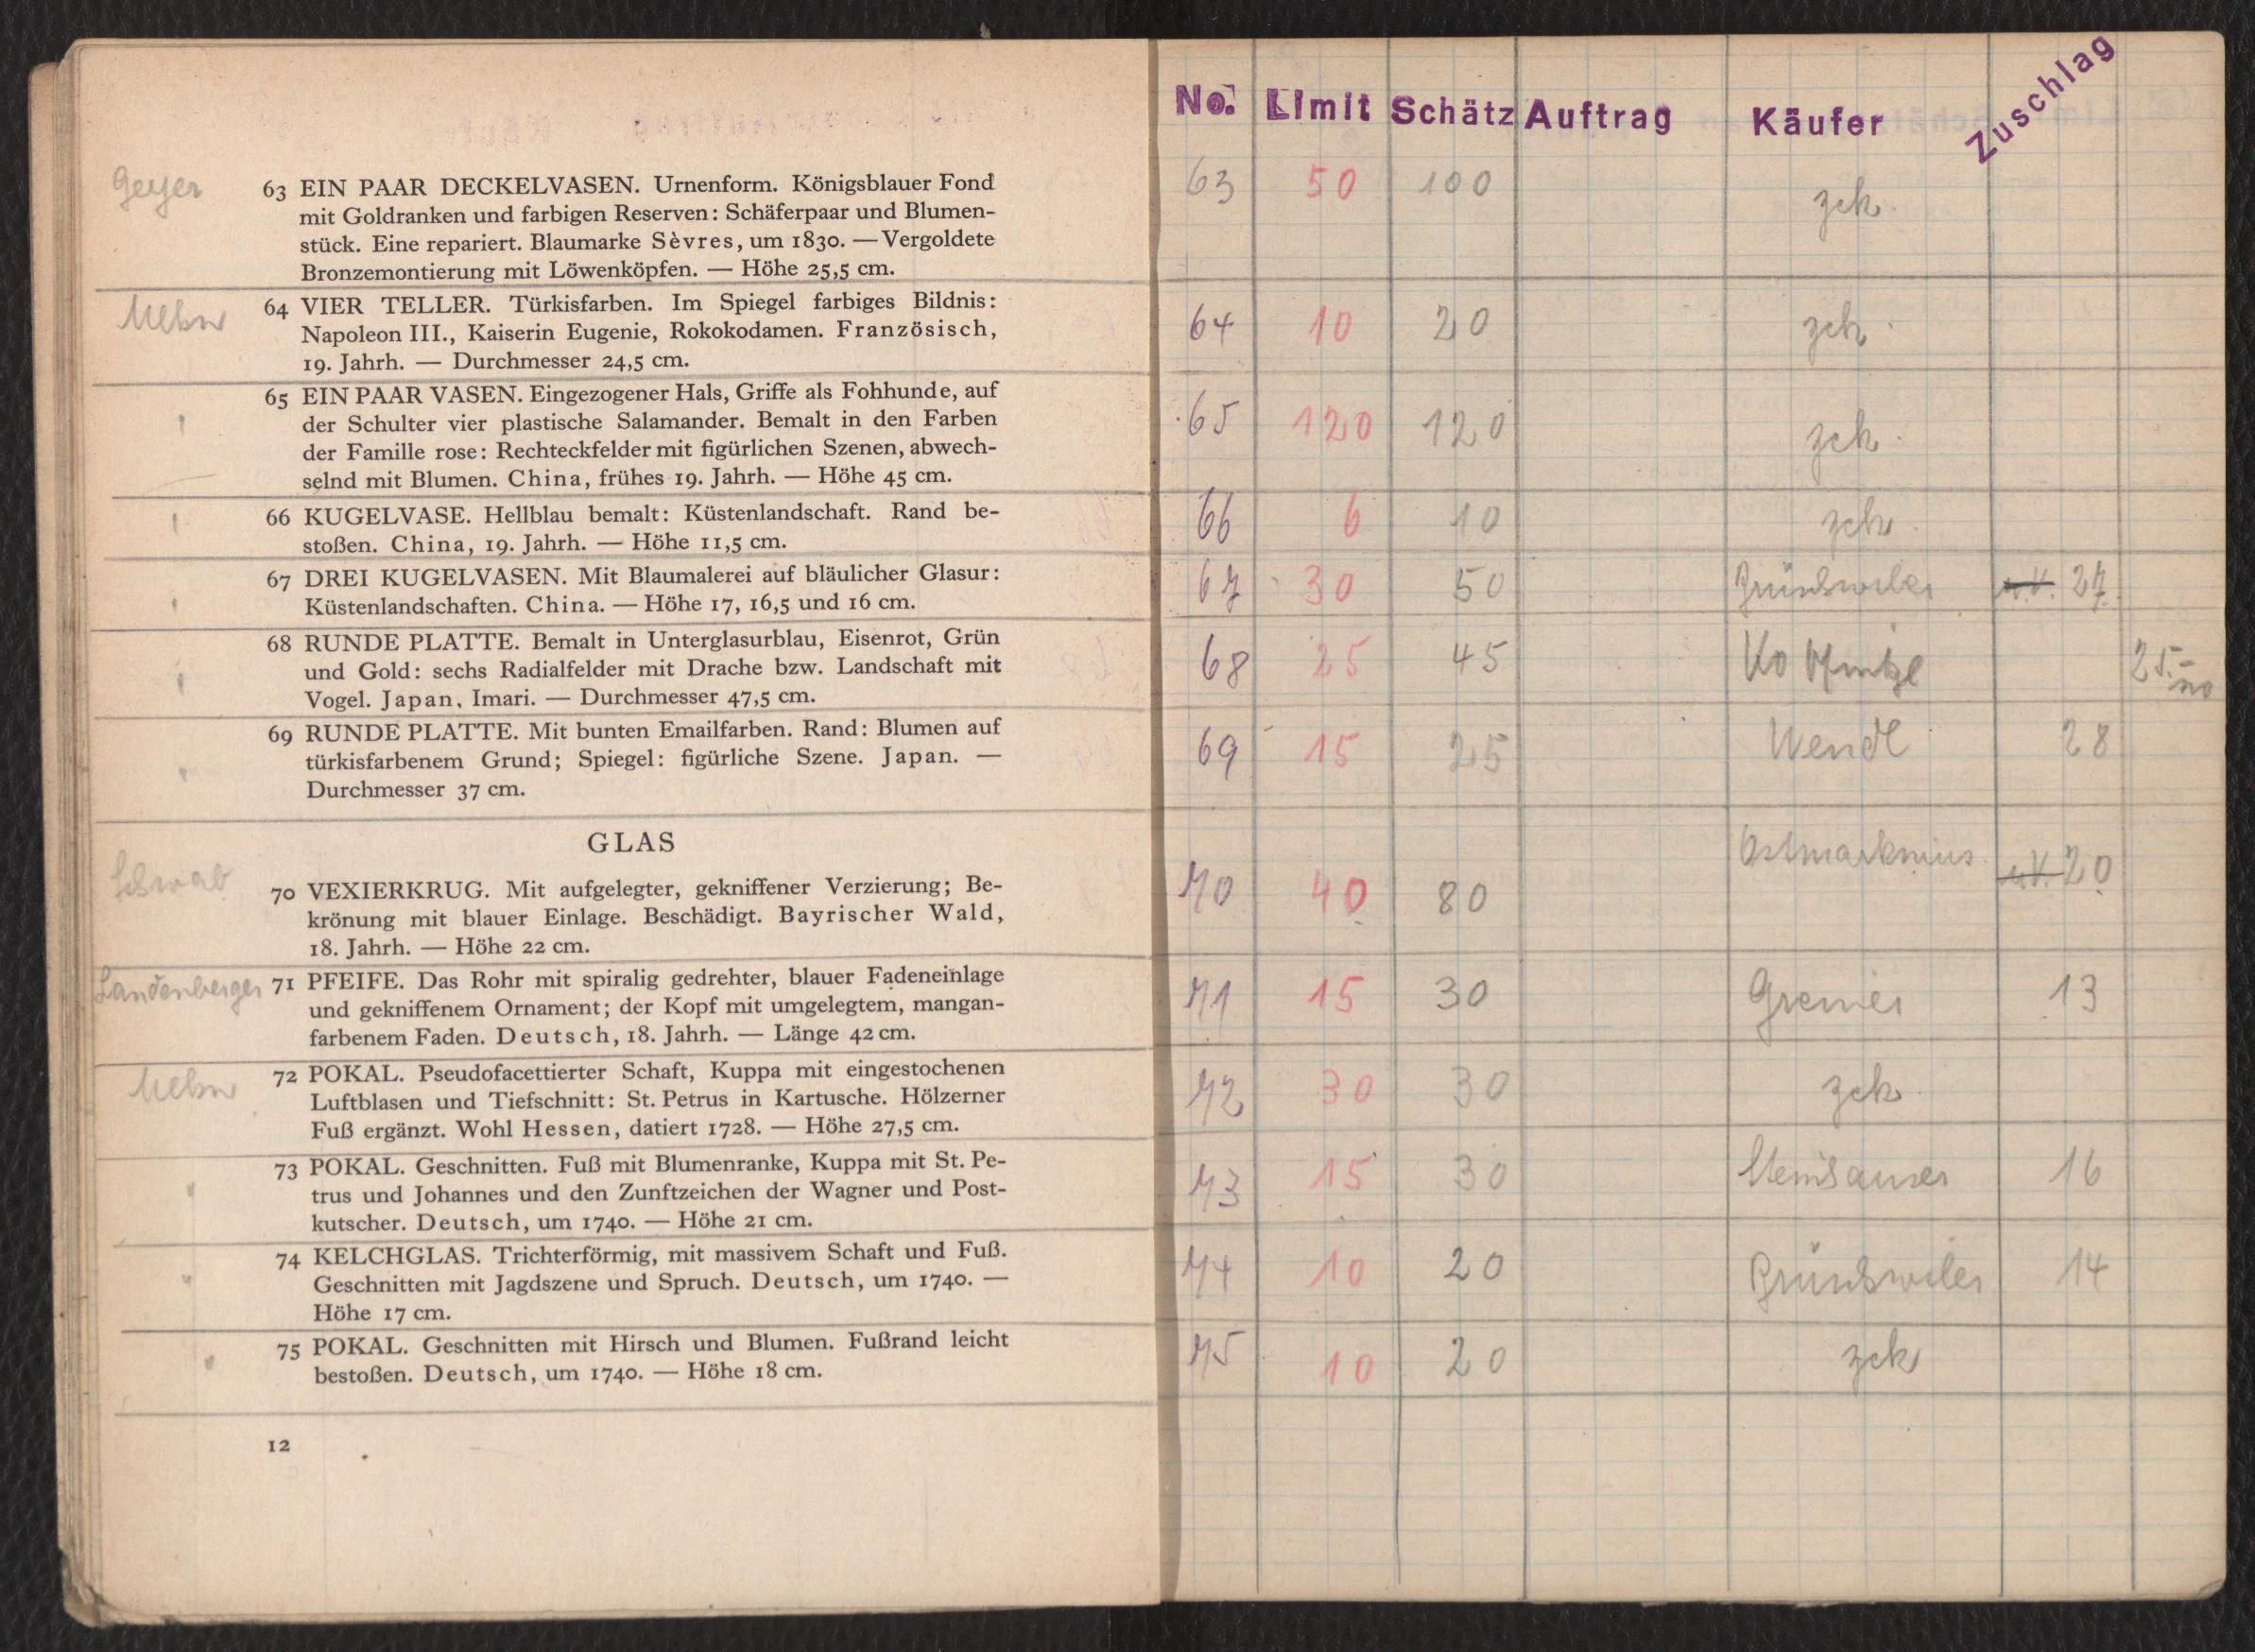 Geyer
63 EIN PAAR DECKELVASEN. Urnenform. Königsblauer Fond
mit Goldranken und farbigen Reserven: Schäferpaar und Blumen-
stück. Eine repariert. Blaumarke Sèvres, um 1830. — Vergoldete
Bronzemontierung mit Löwenköpfen. — Höhe 25,5 cm.
64 VIER TELLER. Türkisfarben. Im Spiegel farbiges Bildnis:
Napoleon III., Kaiserin Eugenie, Rokokodamen. Französisch,
19. Jahrh. — Durchmesser 24,5 cm.
65 EIN PAAR VASEN. Eingezogener Hals, Griffe als Fohhunde, auf
der Schulter vier plastische Salamander. Bemalt in den Farben
der Famille rose: Rechteckfelder mit figürlichen Szenen, abwech-
selnd mit Blumen. China, frühes 19. Jahrh. — Höhe 45 cm.
66 KUGELVASE. Hellblau bemalt: Küstenlandschaft. Rand be-
stoßen. China, 19. Jahrh. — Höhe 11,5 cm.
67 DREI KUGELVASEN. Mit Blaumalerei auf bläulicher Glasur:
Küstenlandschaften. China. — Höhe 17, 16,5 und 16 cm.
68 RUNDE PLATTE. Bemalt in Unterglasurblau, Eisenrot, Grün
und Gold: sechs Radialfelder mit Drache bzw. Landschaft mit
Vogel. Japan, Imari. — Durchmesser 47,5 cm.
69 RUNDE PLATTE. Mit bunten Emailfarben. Rand: Blumen auf
türkisfarbenem Grund; Spiegel: figürliche Szene. Japan. —
Durchmesser 37 cm.
GLAS
Schwab
70 VEXIERKRUG. Mit aufgelegter, gekniffener Verzierung; Be-
krönung mit blauer Einlage. Beschädigt. Bayrischer Wald,
18. Jahrh. — Höhe 22 cm.
Landenberger
71 PFEIFE. Das Rohr mit spiralig gedrehter, blauer Fadeneinlage
und gekniffenem Ornament; der Kopf mit umgelegtem, mangan-
farbenem Faden. Deutsch, 18. Jahrh. — Länge 42 cm.
72 POKAL. Pseudofacettierter Schaft, Kuppa mit eingestochenen
Luftblasen und Tiefschnitt: St. Petrus in Kartusche. Hölzerner
Fuß ergänzt. Wohl Hessen, datiert 1728. — Höhe 27,5 cm.
73 POKAL. Geschnitten. Fuß mit Blumenranke, Kuppa mit St. Pe-
trus und Johannes und den Zunftzeichen der Wagner und Post-
kutscher. Deutsch, um 1740. — Höhe 21 cm.
74 KELCHGLAS. Trichterförmig, mit massivem Schaft und Fuß.
Geschnitten mit Jagdszene und Spruch. Deutsch, um 1740. —
Höhe 17 cm.
75 POKAL. Geschnitten mit Hirsch und Blumen. Fußrand leicht
bestoßen. Deutsch, um 1740. — Höhe 18 cm.
12
No. Limit Schätz Auftrag Käufer Zuschlag
63 50 100 zck.
64 10 20 zck.
65 120 120 zck.
66 6 10 zck.
67 30 50 27
68 25 45 25.-
69 15 25 Wendl 28
70 40 80 20
71 15 30 Greiner 13
72 30 30 zck.
73 15 30 16
74 10 20 14
75 10 20 zck